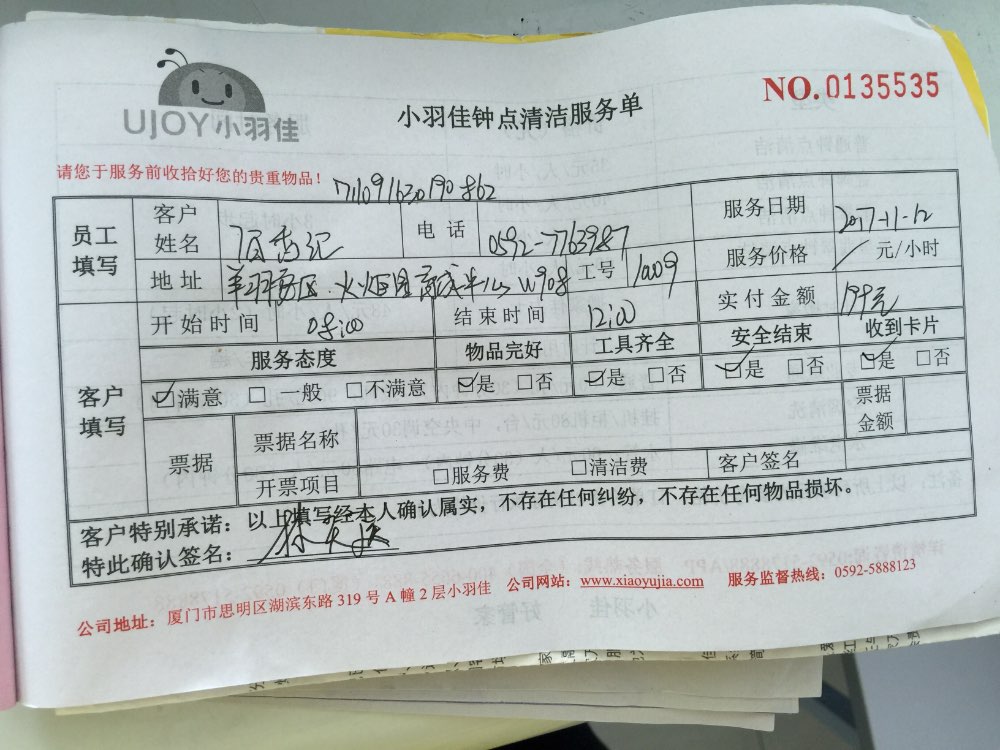 UJOY小羽佳
小羽佳钟点清洁服务单
NO.0135535
请您于服务前收拾好您的贵重物品！
员工填写
客户姓名
电话 0592-7763987
服务日期 2017-11-12
地址
工号
服务价格 元/小时
客户填写
开始时间 08:00
结束时间 12:00
实付金额
服务态度 物品完好 工具齐全 安全结束 收到卡片
☑满意 □一般 □不满意 ☑是 □否 ☑是 □否 ☑是 □否 ☑是 □否
票据
票据名称
票据金额
开票项目 □服务费 □清洁费 客户签名
客户特别承诺：以上填写经本人确认属实，不存在任何纠纷，不存在任何物品损坏。
特此确认签名：
公司地址：厦门市思明区湖滨东路 319 号 A 幢 2 层小羽佳 公司网站：www.xiaoyujia.com 服务监督热线：0592-5888123